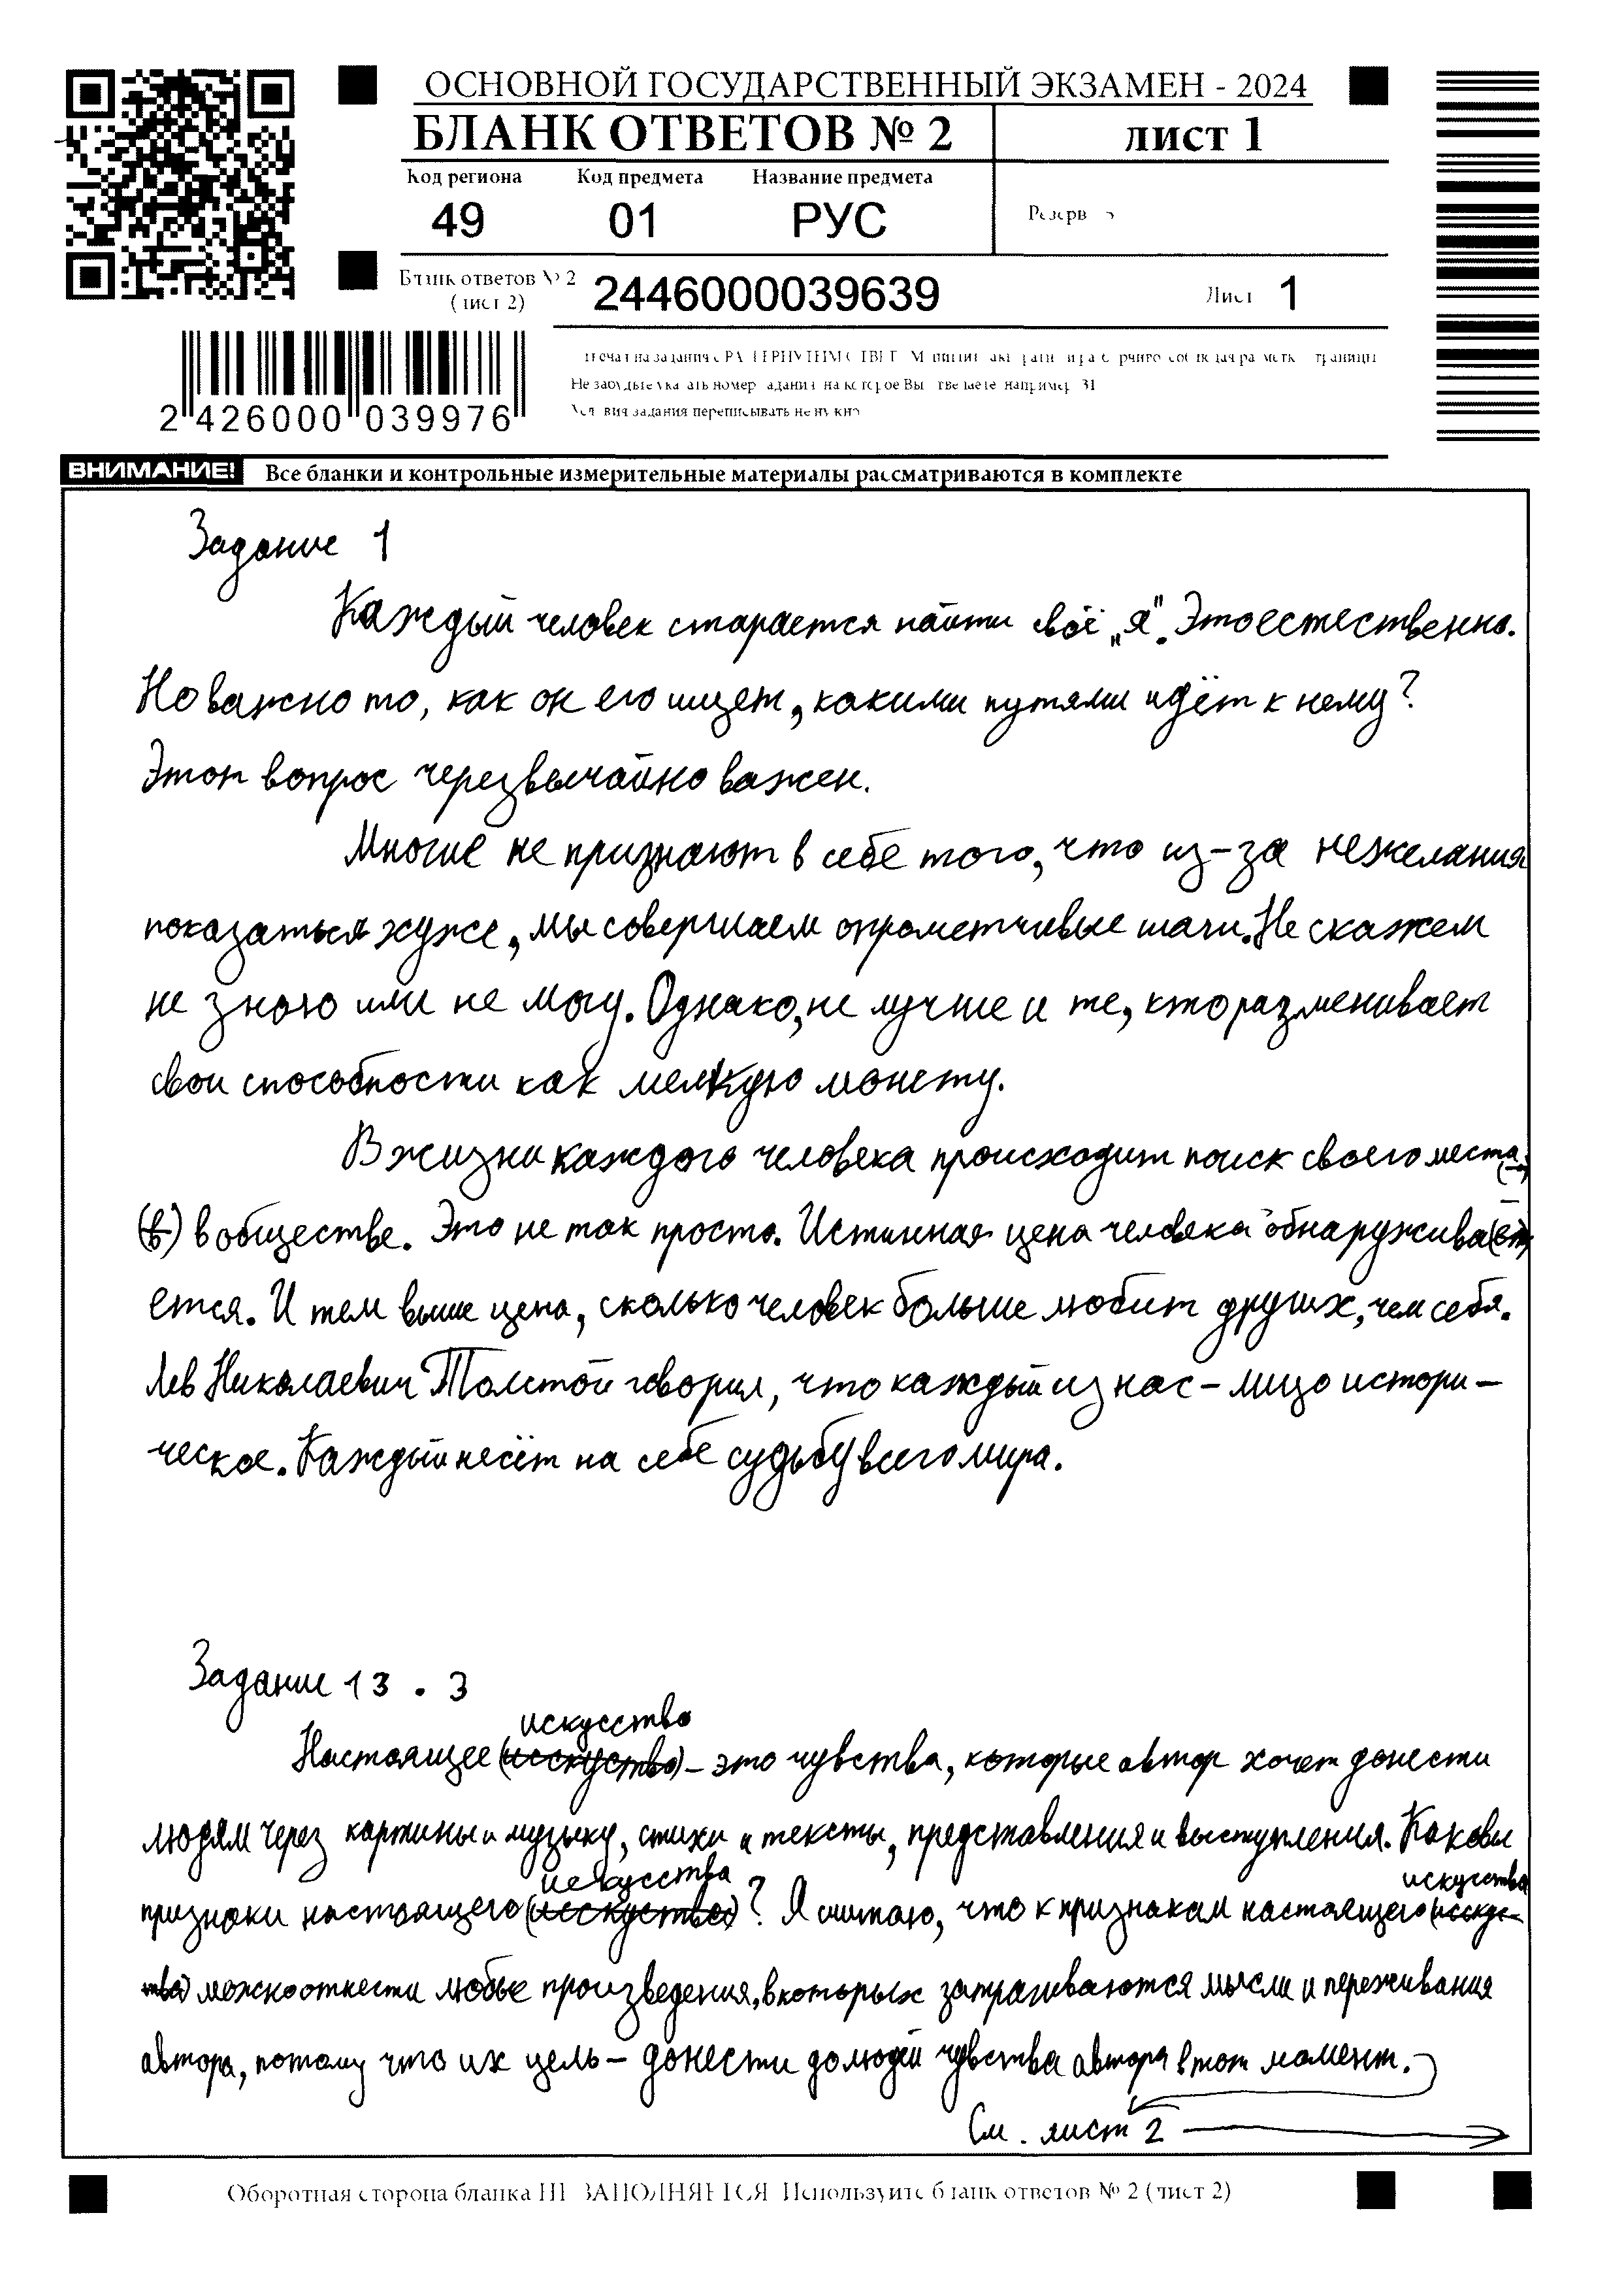 ОСНОВНОЙ ГОСУДАРСТВЕННЫЙ ЭКЗАМЕН - 2024
БЛАНК ОТВЕТОВ № 2
ЛИСТ 1
Код региона Код предмета Название предмета
49 01 РУС
Резерв
Бланк ответов № 2
(лист 2)
2446000039639
Лист 1
2 426000 039976
ВНИМАНИЕ! Все бланки и контрольные измерительные материалы рассматриваются в комплекте
Задание 1
Каждый человек старается найти своё „я". Это естественно.
Но важно то, как он его ищет, какими путями идёт к нему?
Этот вопрос черезвычайно важен.
Многие не признают в себе того, что из-за нежелания
показаться хуже, мы совершаем опрометчивые шаги. Не скажем
не знаю или не могу. Однако, не лучше и те, кто разменивает
свои способности как мелкую монету.
В жизни каждого человека происходит поиск своего места
(в) в обществе. Это не так просто. Истинная цена человека обнаружива(ет)
ется. И тем выше цена, сколько человек больше любит других, чем себя.
Лев Николаевич Толстой говорил, что каждый из нас – лицо истори-
ческое. Каждый несёт на себе судьбу всего мира.
Задание 13.3
искусство
Настоящее (исскуство) – это чувства, которые автор хочет донести
людям через картины и музыку, стихи и тексты, представления и выступления. Каковы
искусства искусства
признаки настоящего (исскуства)? Я считаю, что к признакам настоящего (исскус-
тва) можно отнести любые произведения, в которых затрагиваются мысли и переживания
автора, потому что их цель – донести до людей чувства автора в тот момент.
См. лист 2
Оборотная сторона бланка НЕ ЗАПОЛНЯЕТСЯ. Используйте бланк ответов № 2 (лист 2)